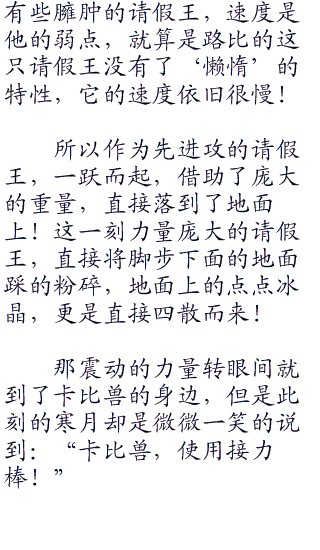 有些臃肿的请假王，速度是
他的弱点，就算是路比的这
只请假王没有了‘懒惰’的
特性，它的速度依旧很慢！
所以作为先进攻的请假
王，一跃而起，借助了庞大
的重量，直接落到了地面
上！这一刻力量庞大的请假
王，直接将脚步下面的地面
踩的粉碎，地面上的点点冰
晶，更是直接四散而来！
那震动的力量转眼间就
到了卡比兽的身边，但是此
刻的寒月却是微微一笑的说
到：“卡比兽，使用接力
棒！”